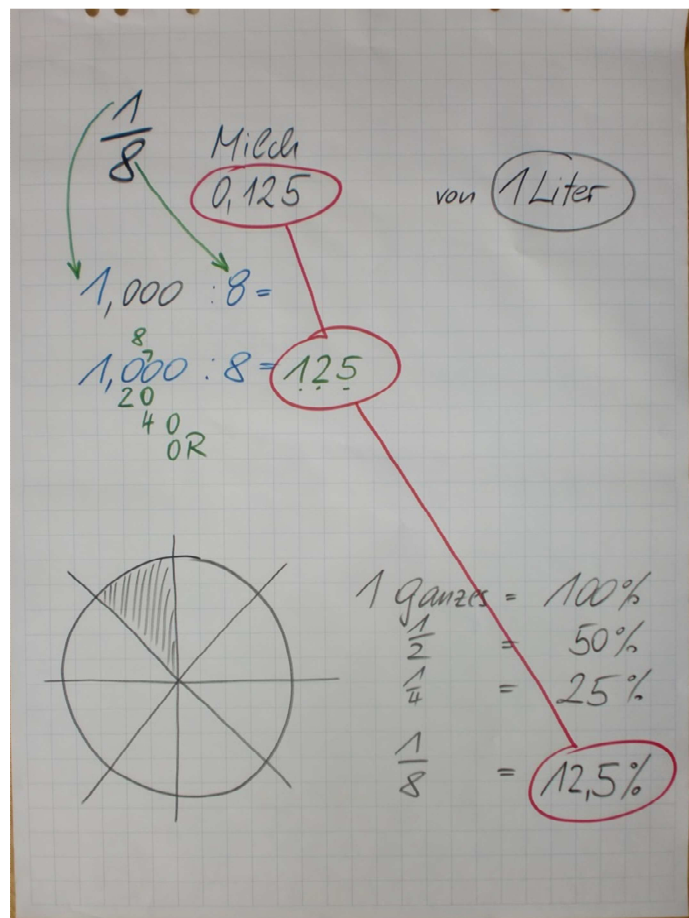 1
8
Milch
0,125
von 1 Liter
1,000 : 8 =
8
1,000 : 8 = 125
20
40
0R
1 ganzes = 100%
1/2 = 50%
1/4 = 25%
1/8 = 12,5%